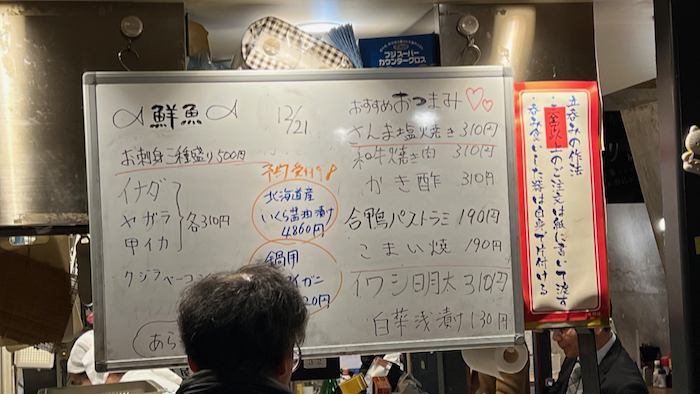 フジスーパー
カウンタークロス
鮮魚
12/21
お刺身二種盛り500円
イナダ
ヤガラ
甲イカ
各310円
クジラベーコン
あら
予約受付中
北海道産
いくら醤油漬け
4860円
鍋用
ガニ
20円
おすすめおつまみ
さんま塩焼き310円
和牛焼き肉 310円
かき酢 310円
合鴨パストラミ 190円
こまい焼 190円
イワシ明太 310円
白菜浅漬け130円
立呑みの作法
のご注文は紙に書いて渡す